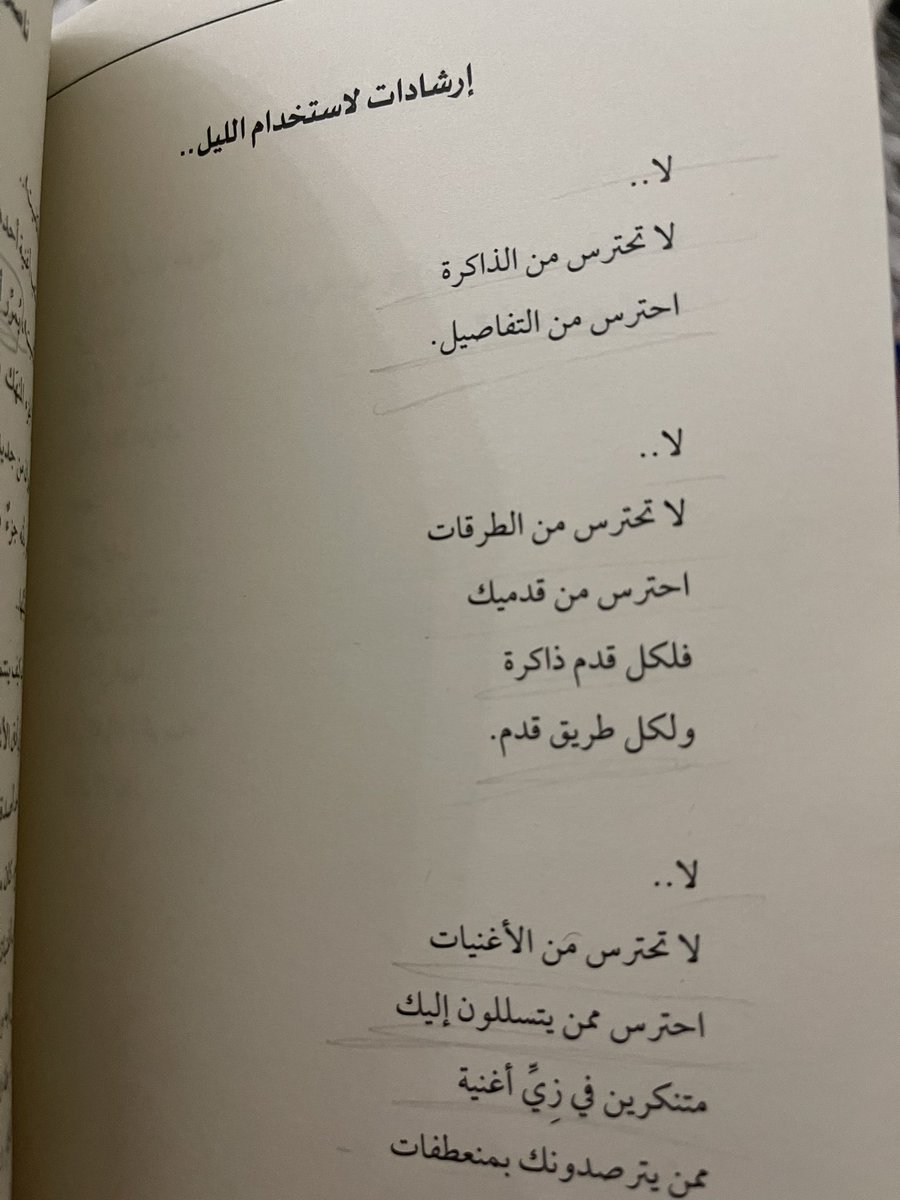 إرشادات لاستخدام الليل..
لا..
لا تحترس من الذاكرة
احترس من التفاصيل.
لا..
لا تحترس من الطرقات
احترس من قدميك
فلكل قدم ذاكرة
ولكل طريق قدم.
لا..
لا تحترس من الأغنيات
احترس ممن يتسللون إليك
متنكرين في زِيِّ أغنية
ممن يترصدونك بمنعطفات